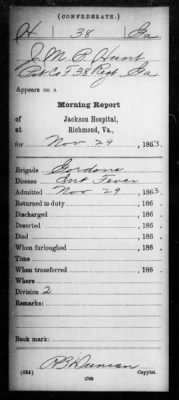 (CONFEDERATE.)
H | 38 | Ga
J. M. P. Hunt
Pvt Co F, 38 Regt. Ga
Appears on a
Morning Report
of Jackson Hospital,
at Richmond, Va.,
for Nov 29, 1863.
Brigade Gordons
Disease Int Fever
Admitted Nov 29, 1863.
Returned to duty , 186 .
Discharged , 186 .
Deserted , 186 .
Died , 186 .
When furloughed , 186 .
Time
When transferred , 186 .
Where
Division 2
Remarks:
Book mark:
R B Duncan
(654) Copyist.